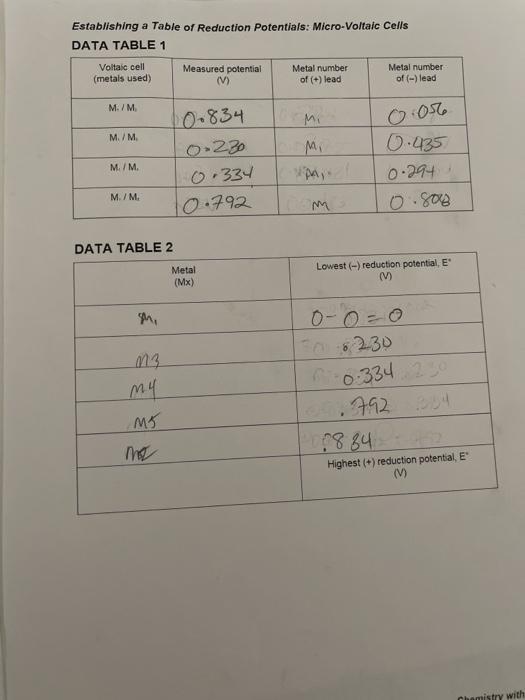 Establishing a Table of Reduction Potentials: Micro-Voltaic Cells
DATA TABLE 1
Voltaic cell (metals used) Measured potential (V) Metal number of (+) lead Metal number of (-) lead
M₁ / M₂ 0.834 M₁ 0.056
M₁ / M₃ 0.230 M₁ 0.435
M₁ / M₄ 0.334 M₁ 0.294
M₁ / M₅ 0.792 m
DATA TABLE 2
Metal (Mx) Lowest (-) reduction potential, E° (V)
M₁ 0-0=0
m3 .230
m4 0.334
m5 .792
m2 .834
Highest (+) reduction potential, E° (V)
Chemistry with